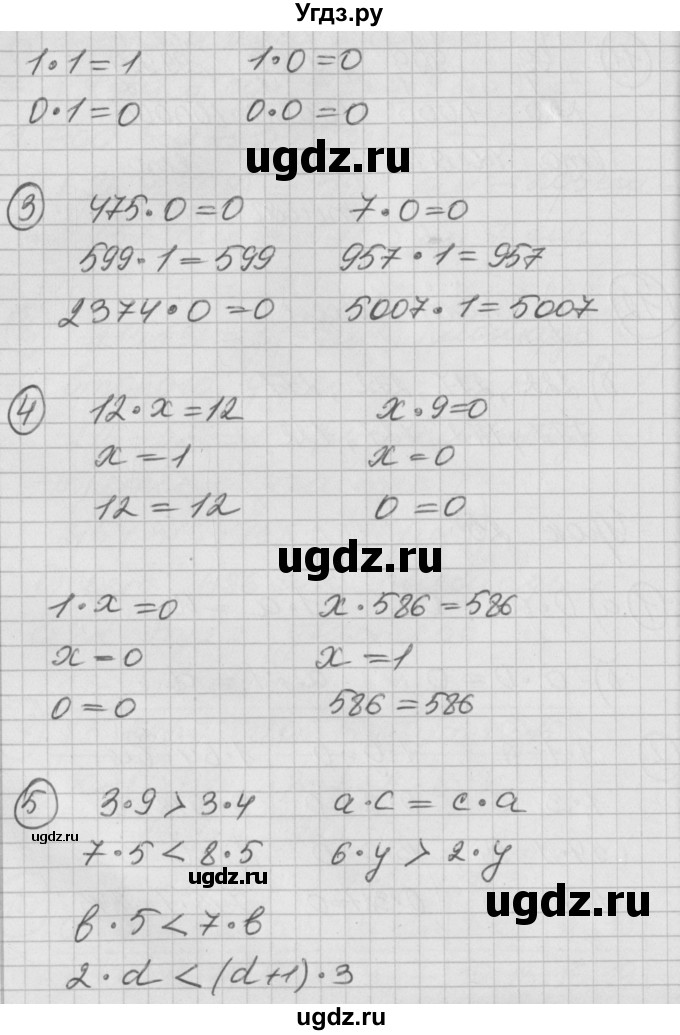 Угдз.ру
1·1=1 1·0=0
0·1=0 0·0=0
ugdz.ru
3 475·0=0 7·0=0
599·1=599 957·1=957
2374·0=0 5007·1=5007
4 12·x=12 x·9=0
x=1 x=0
12=12 0=0
ugdz.ru
1·x=0 x·586=586
x=0 x=1
0=0 586=586
5 3·9>3·4 a·c=c·a
ugdz.ru
7·5<8·5 6·y>2·y
ugdz.ru
ugdz.ru
b·5<7·b
2·d<(d+1)·3
ugdz.ru